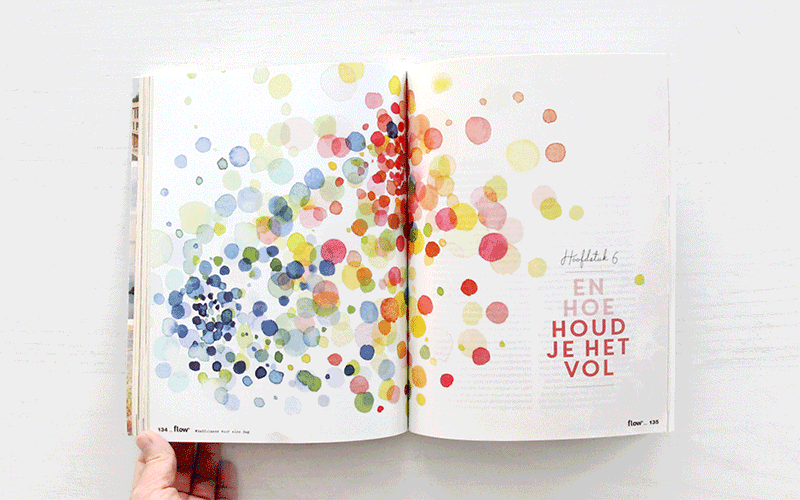 Hoofdstuk 6
EN
HOE
HOUD
JE HET
VOL
134 _ flow
flow _ 135